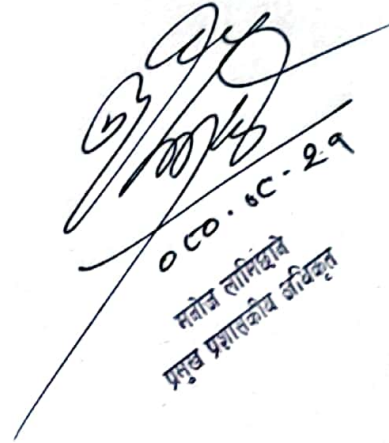 ०८०.०८-२१
मनोज लामिछाने
प्रमुख प्रशासकीय अधिकृत